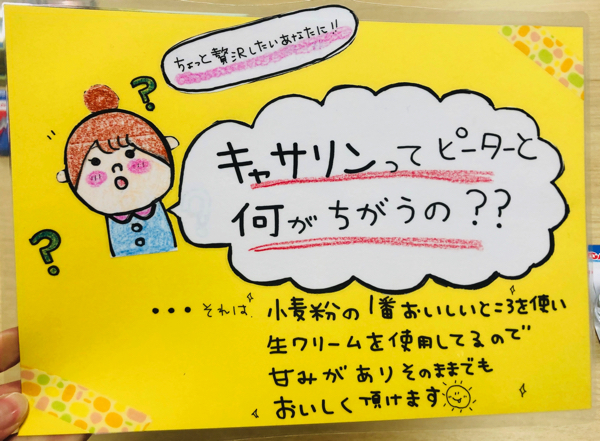 ちょっと贅沢したいあなたに!!
?
キャサリンってピーターと
何がちがうの??
?
・・・それは 小麦粉の1番おいしいところを使い
生クリームを使用してるので
甘みがありそのままでも
おいしく頂けます